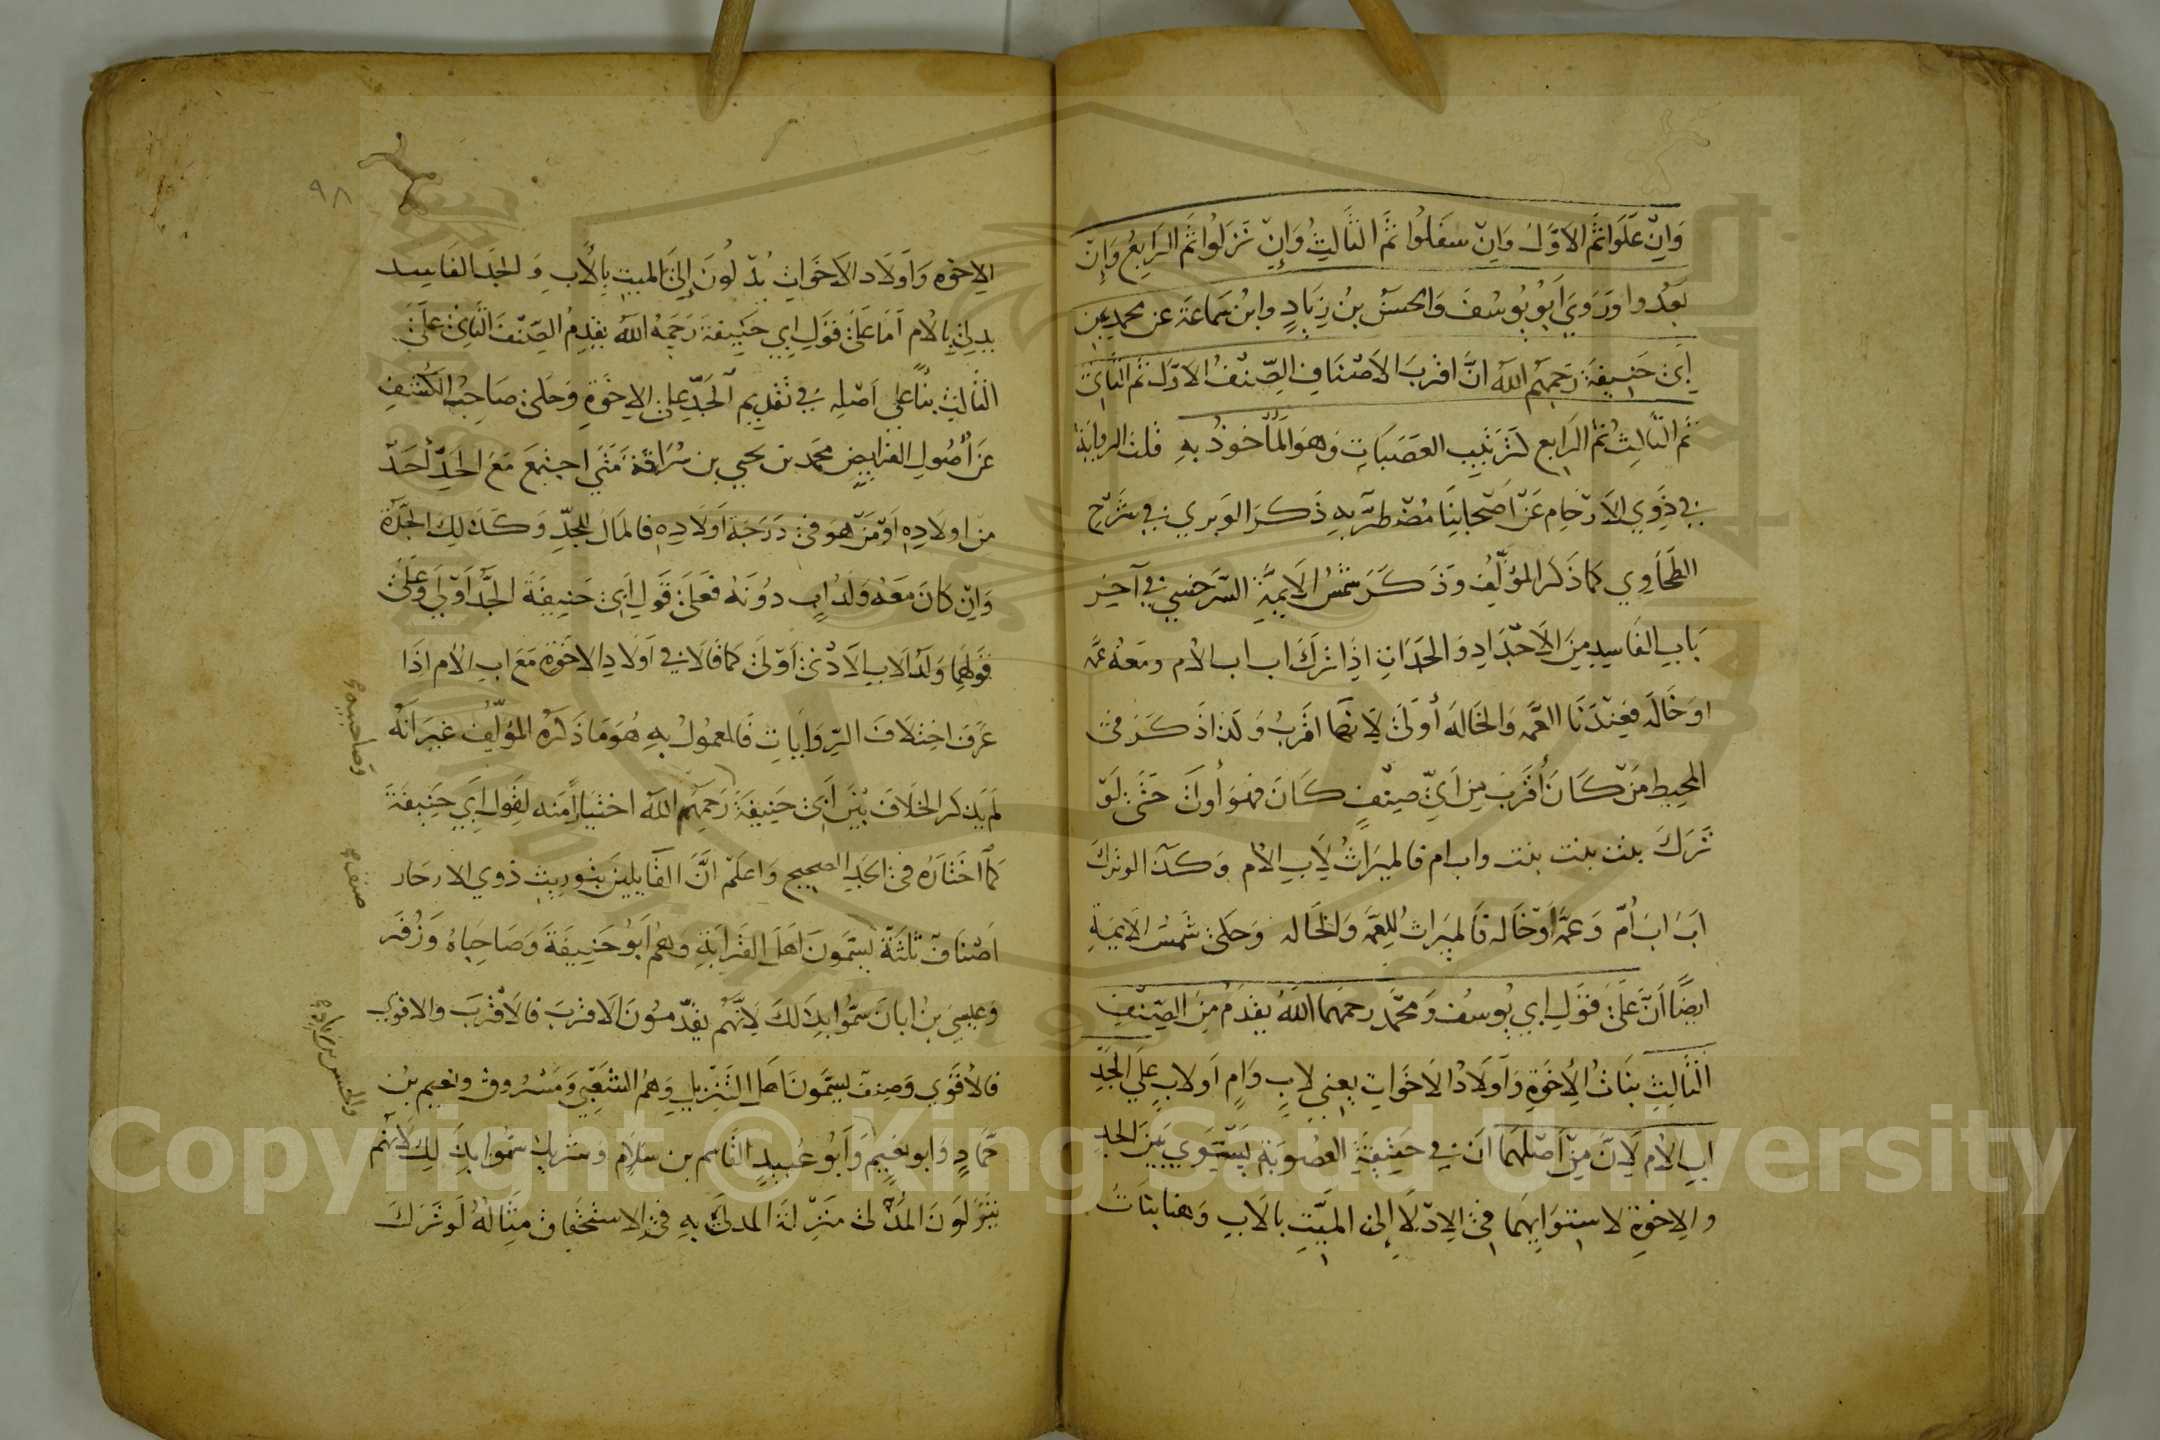 وَاِنْ عَلَوا ثُمَّ الاَوَّلُ وَاِنْ سَفَلُوا ثُمَّ الثَّالِثُ وَاِنْ نَزَلُوا ثُمَّ الرَابِعُ وَاِنْ
بَعُدُوا وَرَوَي اَبُو يُوسُفَ وَالحسَنُ بنُ زِيَادٍ وابْنُ سَمَاعَة عن محمد عن
اَبِي حَنِيفَةَ رَحِمَهُم اللّهُ انَّ اقرَبَ الاَصْنَافِ الصِّنْفُ الاَوَّلُ ثم الثَّاني
ثم الثَّالِثُ ثم الرَابِع كَتَرتِيبِ العَصَبَاتِ وَهوَ المَأْخوذُ بهِ قلت الرواية
في ذَوِي الاَرْحَامِ عَنْ اَصْحَابِنَا مُضْطَرِبه ذَكرَ الوبري في شَرْحِ
الطَحَاوِي كما ذَكَر المؤلِّفُ وَذَكَرَ شمْسُ الاَيِمَّةِ السَّرَخسِي في آخِرِ
بَابِ الفَاسِدِ مِنَ الاَجْدَادِ وَالجَدَاتِ اِذَا تَرَكَ اب اب الاُم ومَعَهُ عَمَّه
اوَ خَالَه فعِنْدَنَا العَمَّه وَالخَالَه أولَى لِانهَا اقرَبُ وَلذا ذَكَرَ في
المحِيط مَنْ كَانَ أَقرَبَ مِن اَيِّ صِنْفٍ كَانَ فهُوَ أولَى حَتَّى لَوْ
تَرَكَ بنت بنت بنت واب ام فالمِيرَاثُ لِاَبِ الاُم وَكَذَا لو تركَ
اَبَ ابَ اُمّ وَعَمَّة اَوْ خَاله فَالمِيرَاثُ لِلعَمَّه وَالخَاله وَحَكى شَمْسُ الاَيِمَةِ
ايضًا اَنَّ عَلَى قَوْلِ ابي يُوسُف وَمحَمَّد رحمَهمَا اللّهُ يقدَمُ مِنَ الصِّنفِ
الثَّالِثِ بَنَاتُ الاِخوَةِ وَاَوْلَادُ الاَخَوَاتِ يعني لابٍ وَامٍ اَو لابٍ عَلَى الجَدِّ
ابِ الاُمِ لِاَنَّ مِنْ اَصْلهمَا اَنَ في حَقِيقَةِ العصُوبَةِ يَسْتَوِي بَينَ الجدِ
والاِخوَةِ لاسْتوَايهمَا في الاِدْلَاءِ اِلى المَيّتِ بالَابِ وَهنا بنَات
٩٨
الاِخوَه وَاَولَاد الاَخَوَاتِ يُدْلُونَ اِلَى الميتِ بِالاَبِ وَالجَد الفَاسِد
يدلِي بالاُم اَمَا عَلَى قَوْلِ ابِي حَنِيفةَ رَحِمَهُ اللّهُ يقدِمُ الصِّنْفَ الثاني عَلَى
الثَالِثِ بِنَاً علي اَصْلِه في تَقدِيمِ الجَدّ عَلى الاِخْوَةِ وَحَكى صَاحِبُ الكَشْفِ
عَن أُصُولِ الفرَايِضِ محمَد بن يحيي بن سُرَاقَة مَتَى اجتمعَ مَعَ الجَدّ أَحَدٌ
من اولَادِهِ اَوْ مَنْ هوَ في دَرَجَة اَولَادِهِ فالمَالُ للجَدِّ وَكَذَلِكَ الجَدَّة
وَاِنْ كانَ مَعَهُ وَلَدُ ابٍ دُونَهُ فعَلَى قَولِ اَبي حَنِيفَة الجَدّ اَوْلَى وَعَلَى
قَولهمَا وَلَدُ الَابِ الاَدْنَى اَوْلَى كمَا قالَا في اَولَادِ الاخوَة مَعَ ابِ الاُم اذَا
عَرَفَ اخِتلَافَ الرِّوَايَاتِ فَالمعمُولُ بهِ هُوَ مَا ذَكرَهُ المؤلِّفُ غيرَ اَنَّهُ
لم يَذكر الخلَافَ بَيْنَ اَبي حَنِيفَةَ رَحِمَهُم اللّهُ اختيَارًا مِنه لقَولِ ابِي حَنِيفَةَ
كمَا اختَارَهُ في الجَدِ الصحِيحِ وَاعلَمْ انَّ القَايِلينَ بتورِيثِ ذوي الارحَام
اَصْنَافٌ ثَلثَةٌ يُسَمَّونَ اَهلَ القَرَابَةِ وَهُم اَبُو حَنِيفَةَ وَصَاحِبَاهُ وَزُفَر
وَعِيسي بنُ ابانَ سُمُّوا بذَلكَ لِاَنَّهُمْ يقَدِّمُونَ الَاقرَبَ فَالَاقْرَبَ وَالاقوي
فالاَقوَي وَصِنف يُسَمَّونَ اَهلَ التَنْزِيلِ وَهُمُ الشَعْبِي وَمَسْرُوق ونعيمُ بْن
حَمَّادٍ وَابو نعيمٍ وَاَبُو عُبيدٍ القَاسِم بن سَلَامٍ وَشريك سُمُّوا بذَلِكَ لِاَنَّهم
يُنَزِّلُونَ المُدْلي مَنْزِلَة المدلَى بهِ في الاِستحْقَاقِ مِثَالُهُ لَو تَرَكَ
وَصَاحبيه
صنف
والحسن بن زياد
Copyright © King Saud University